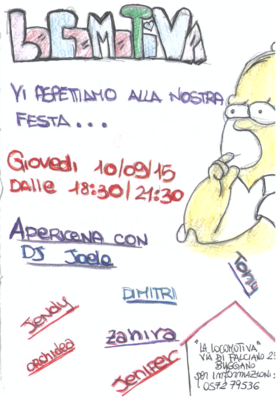 LOCOMOTIVA
VI ASPETTIAMO ALLA NOSTRA
FESTA...
Giovedì 10/09/15
DALLE 18:30/21:30
APERICENA CON
DJ Joele
Tommy
DIMITRI
JENDY
ZAHIRA
ORCHIDEA
JENIFER
"LA LOCOMOTIVA"
VIA DI FALCIANO 25
BUGGIANO
per INFORMAZIONI:
0572 79536